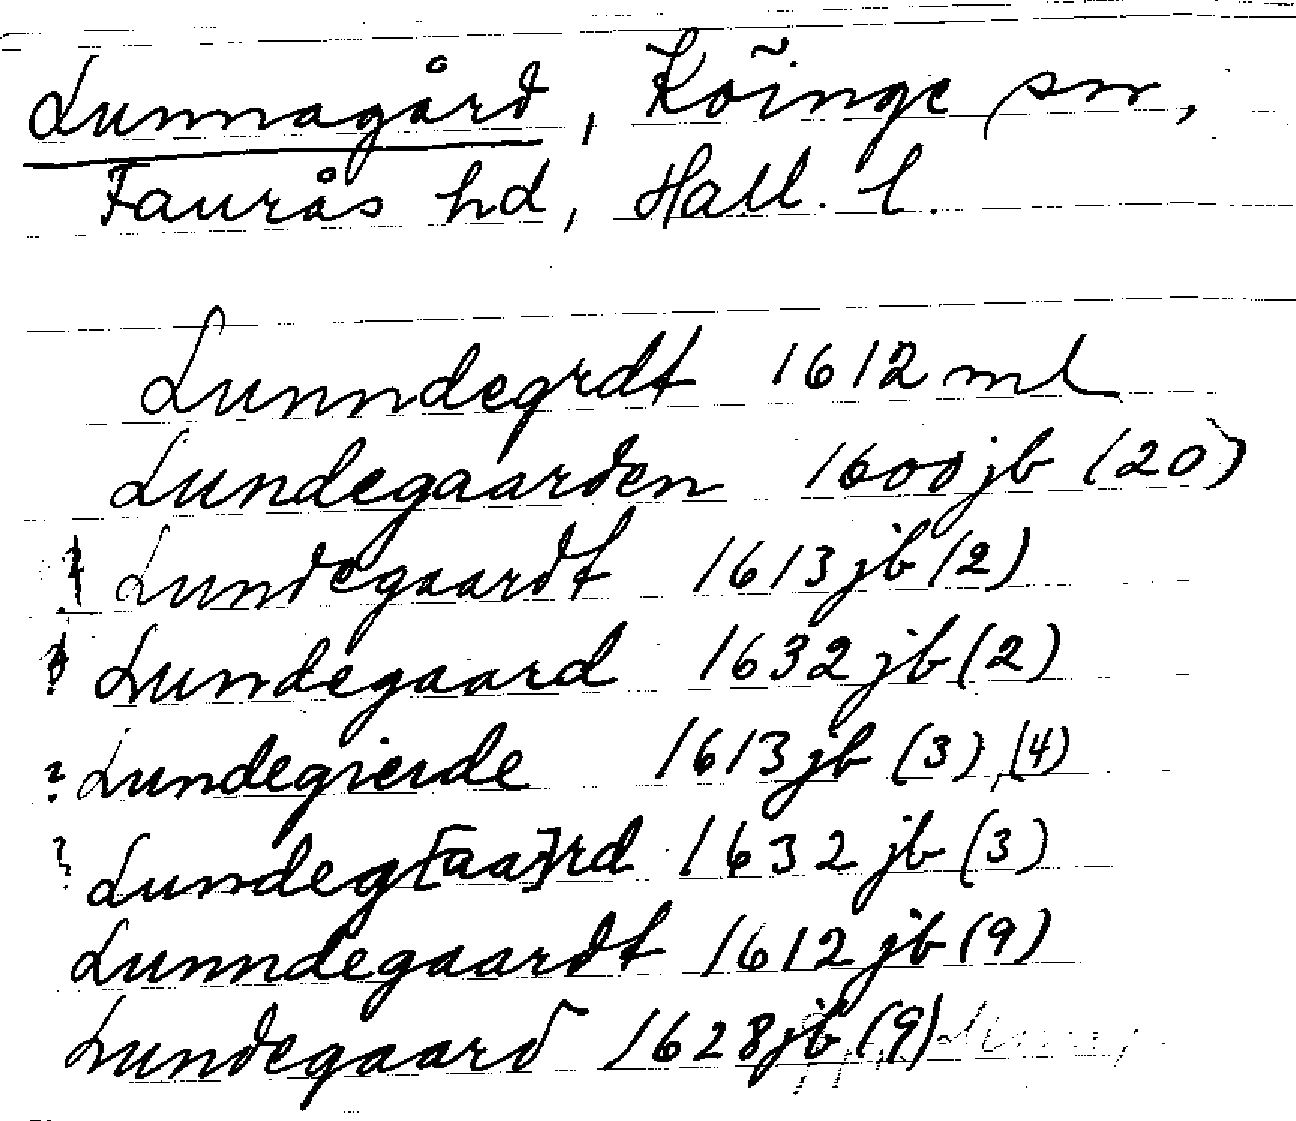 Lunnagård, Köinge sn,
Faurås hd, Hall. l.
Lunndegrdt 1612 ml
Lundegaarden 1600 jb (20)
Lundegaardt 1613 jb (2)
Lundegaard 1632 jb (2)
? Lundegierde 1613 jb (3), (4)
? Lundeg[aa]rd 1632 jb (3)
Lunndegaardt 1612 jb (9)
Lundegaard 1628 jb (9)